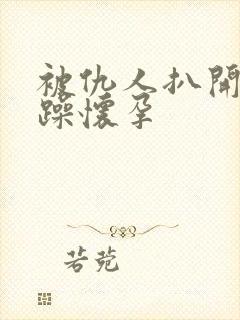 被仇人扒開
躁懷孕
若菀